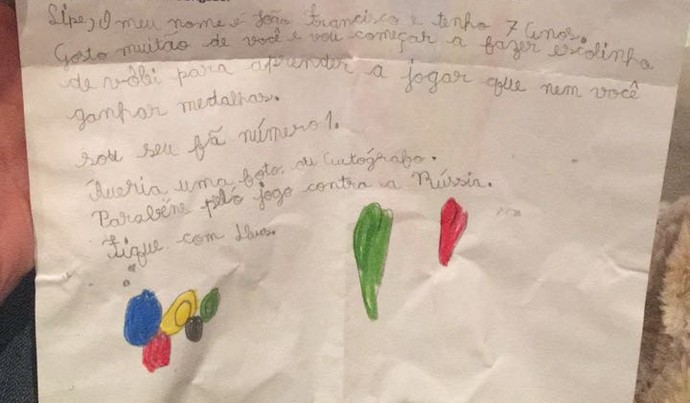 Lipe, O meu nome é João Francisco e tenho 7 anos.
Gosto muitão de você e vou começar a fazer escolinha
de vôlei para aprender a jogar que nem você
ganhar medalhas.
sou seu fã número 1.
Queria uma foto, de Cutógrafo.
Parabéns pelo jogo contra a Rússia.
Fique com Deus.